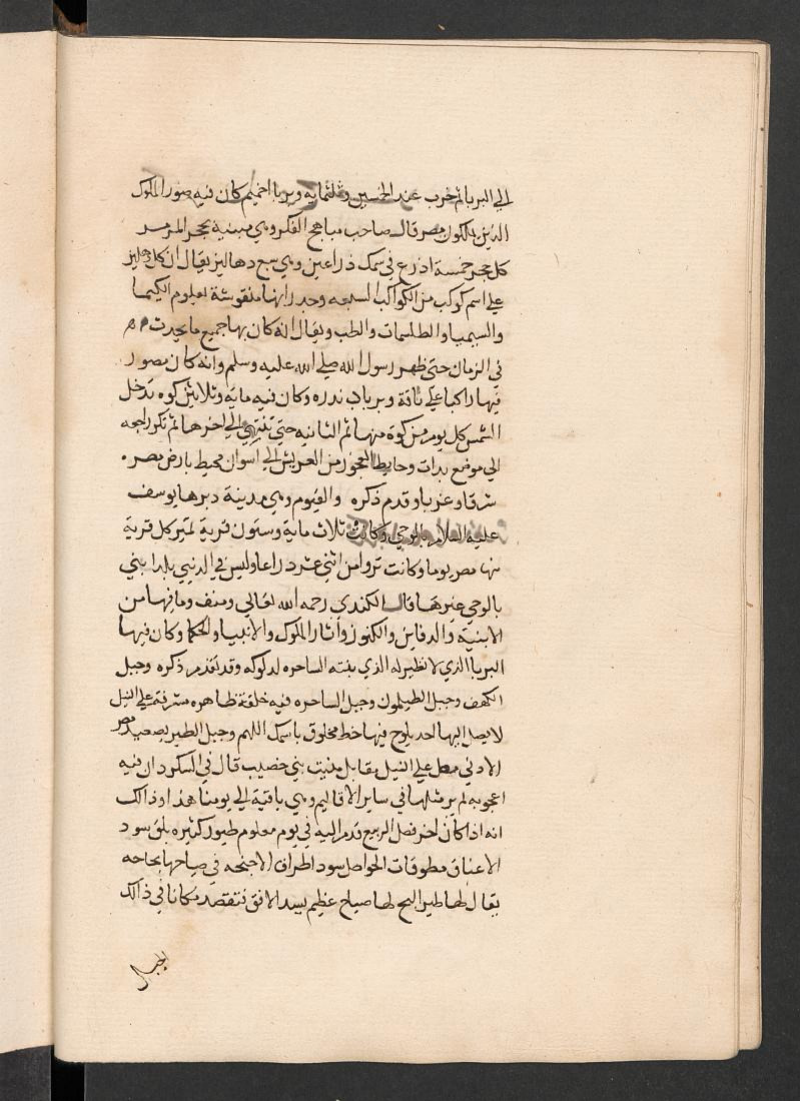 الي البربا ثم خرب عند الخمسين وثلثمايه وبربا اخميم كان فيه صور الملوك
الذين يملكون مصر قال صاحب مباهج الفكر وهي مبنية بحجر المرمر
كل حجر خمسة اذرع في سمك ذراعين وهي سبع دهاليز يقال ان كل دهليز
علي اسم كوكب من الكواكب السبعه وجدرانها منقوشة بعلوم الكيميا
والسيميا والطلسمات والطب ويقال انه كان بها جميع ما يحدث
في الزمان حتي ظهر رسول الله صلي الله عليه وسلم وانه كان مصور
فيها راكبا علي ناقة وبربا دندره وكان فيه مايه وثلاثين كوه تدخل
الشمس كل يوم من كوة منها ثم الثانيه حتي تنتهي الي اخرها ثم تكر راجعه
الي موضع بدات وحايط العجوز من العريش الي اسوان محيط بارض مصر
شرقا وغربا وقدم ذكره والفيوم وهي مدينة دبرها يوسف
عليه السلام بالوحي وكانت ثلاث ماية وستون قرية تمير كل قرية
منها مصر يوما وكانت تروا من اثني عشر دراعا وليس في الدنيي بلدا بني
بالوحي غيرها قال الكندي رحمه الله تعالي ومنف وما فيها من
الابنيه والدفاين والكنوز واثار الملوك والانبيا والحكما وكان فيها
البربا الذي لا نظير له الذي بنته الساحره لدلوكه وقد تقدم ذكره وجبل
الكهف وجبل الطيلمون وجبل الساحره فيه خلقة ظاهره مشرفة علي النيل
لا يصل اليها احد يلوح فيها خط مخلوق باسمك اللهم وجبل الطير بصعيد مصر
الادني مطل علي النيل مقابل منيت بني خصيب قال في السكردان فيه
اعجوبه لم ير مثلها في ساير الاقاليم وهي باقية الي يومنا هذا وذالك
انه اذا كان اخر فصل الربيع قدم اليه في يوم معلوم طيور كثيره بلق سود
الاعناق مطوقات الحواصل سود اطراف الاجنحه في صياحها بحاحه
يقال لها طير البح لها صياح عظيم يسد الافق فتقصد مكانا في ذالك
الجبل